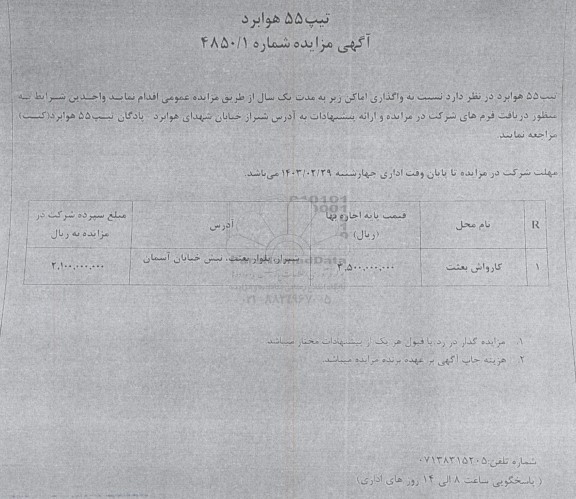 تیپ ۵۵ هوابرد
آگهی مزایده شماره ۴۸۵۰/۱
تیپ ۵۵ هوابرد در نظر دارد نسبت به واگذاری اماکن زیر به مدت یک سال از طریق مزایده عمومی اقدام نماید واجدین شرایط به
منظور دریافت فرم های شرکت در مزایده و ارائه پیشنهادات به آدرس شیراز خیابان شهدای هوابرد - پادگان تیپ ۵۵ هوابرد
مراجعه نمایند.
مهلت شرکت در مزایده تا پایان وقت اداری چهارشنبه ۱۴۰۳/۰۲/۲۹ می‌باشد.
R نام محل قیمت پایه اجاره بها (ریال) آدرس مبلغ سپرده شرکت در مزایده به ریال
۱ کارواش بعثت ۳,۵۰۰,۰۰۰,۰۰۰ شیراز، بلوار بعثت، نبش خیابان آسمان ۲,۱۰۰,۰۰۰,۰۰۰
۱. مزایده گذار در رد یا قبول هر یک از پیشنهادات مختار میباشد
۲. هزینه چاپ آگهی بر عهده برنده مزایده میباشد.
شماره تلفن: ۰۷۱۳۸۲۱۵۲۰۵
( پاسخگویی ساعت ۸ الی ۱۴ روز های اداری)